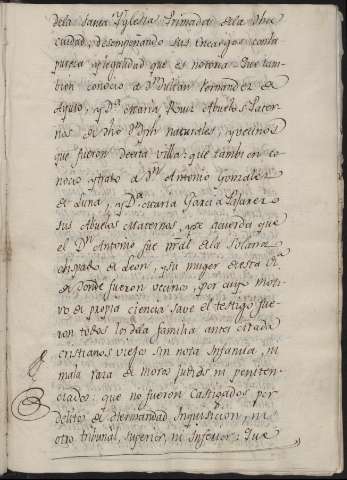 dela Santa Yglesia Primada dela Dha
ciudad, desempeñando sus encargos conla
pureza y legalidad que es notoria: Que tam-
bien conocio a Dn Julian Fernandez de
y Dª Maria Ruiz Abuelos Pater-
nos de dho Dn Jph naturales, y vecinos
que fueron desta villa: que tambien co-
nocio y trato a Dn Antonio Gonzalez
de Luna, y Dª Maria Garcia
sus Abuelos Maternos, y se acuerda que
el Dn Antonio fue nral dela Solana
obispado de Leon, y su muger de esta Vª
de donde fueron vecinos, por cuyo moti-
vo de propia ciencia save el testigo fue-
ron todos los dela familia antes citada
cristianos viejos sin nota Infamia, ni
mala raza de Moros Judios ni peniten-
ciados: que no fueron castigados por
delitos de Hermandad, Inquisicion, ni
otro tribunal, superior, ni Inferior: Que